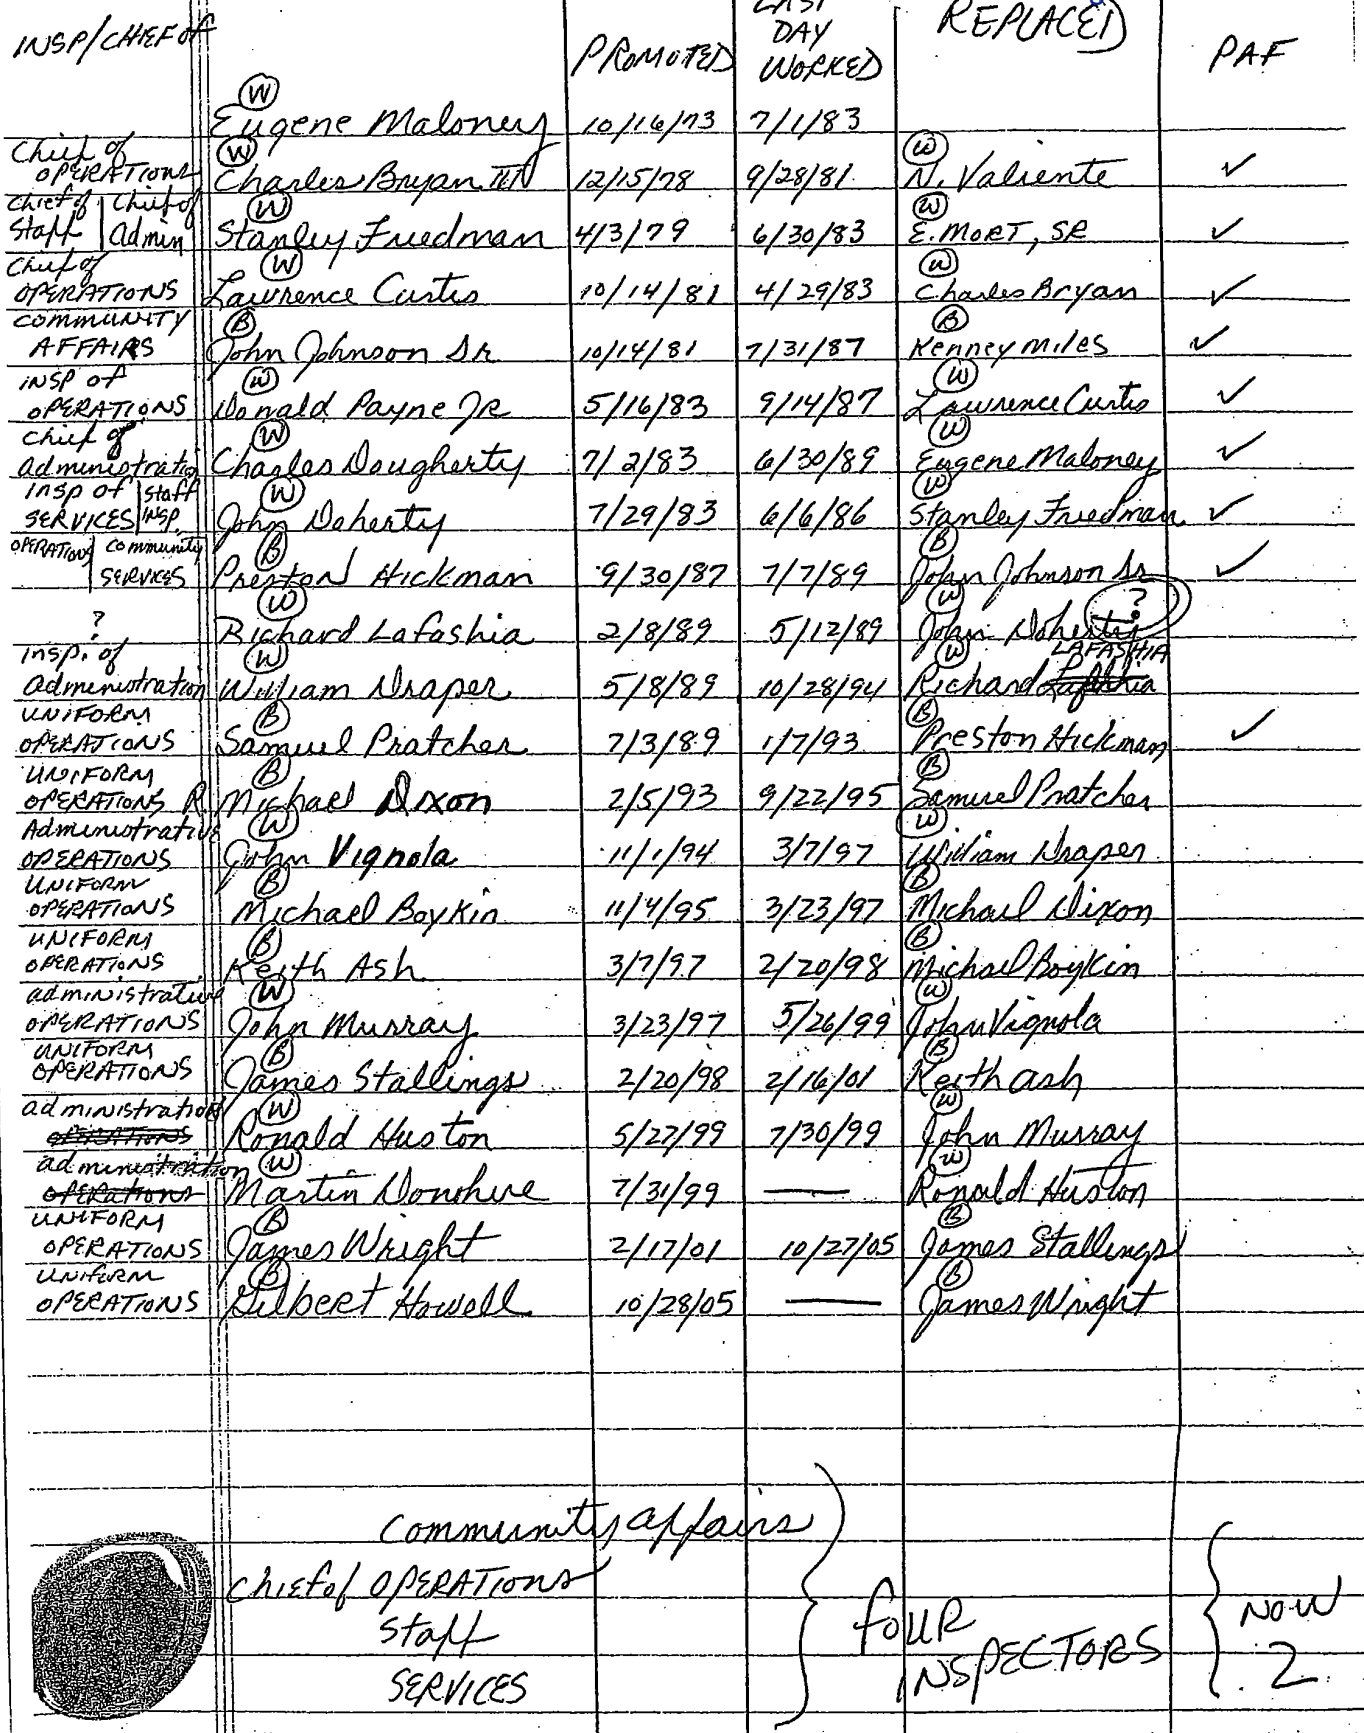 INSP/CHIEF of PROMOTED LAST DAY WORKED REPLACED PAF
(W)
Eugene Maloney 10/16/73 7/1/83
Chief of OPERATIONS (W) Charles Bryan III 12/15/78 9/28/81 (W) N. Valiente ✓
Chief of Staff | Chief of Admin (W) Stanley Friedman 4/3/79 6/30/83 (W) E. MORT, SR ✓
Chief of OPERATIONS (W) Lawrence Curtis 10/14/81 4/29/83 (W) Charles Bryan ✓
COMMUNITY AFFAIRS (B) John Johnson Sr 10/14/81 7/31/87 (B) Kenney Miles ✓
INSP of OPERATIONS (W) Donald Payne JR 5/16/83 9/14/87 (W) Lawrence Curtis ✓
Chief of administratio (W) Charles Dougherty 7/2/83 6/30/89 (W) Eugene Maloney ✓
Insp of SERVICES | Staff INSP. (W) John Doherty 7/29/83 6/6/86 (W) Stanley Friedman ✓
OPERATIONS | Community SERVICES (B) Preston Hickman 9/30/87 7/7/89 (B) John Johnson Sr ✓
? (W) Richard Lafashia 2/8/89 5/12/89 (W) John Doherty ?
Insp. of administration (W) William Draper 5/8/89 10/28/94 (W) Richard LAFASHIA
UNIFORM OPERATIONS (B) Samuel Pratcher 7/3/89 1/7/93 (B) Preston Hickman ✓
UNIFORM OPERATIONS R (B) Michael Dixon 2/5/93 9/22/95 (B) Samuel Pratcher
Administrative OPERATIONS (W) John Vignola 11/1/94 3/7/97 (W) William Draper
UNIFORM OPERATIONS (B) Michael Boykin 11/4/95 3/23/97 (B) Michael Dixon
UNIFORM OPERATIONS (B) Keith Ash 3/7/97 2/20/98 (B) Michael Boykin
administrative OPERATIONS (W) John Murray 3/23/97 5/26/99 (W) John Vignola
UNIFORM OPERATIONS (B) James Stallings 2/20/98 2/16/01 (B) Keith Ash
administration OPERATIONS (W) Ronald Huston 5/27/99 7/30/99 (W) John Murray
administration OPERATIONS (W) Martin Donohue 7/31/99 — (W) Ronald Huston
UNIFORM OPERATIONS (B) James Wright 2/17/01 10/27/05 (B) James Stallings
UNIFORM OPERATIONS (B) Gilbert Howell 10/28/05 — (B) James Wright
Community affairs
Chief of OPERATIONS
Staff
SERVICES
FOUR INSPECTORS
NOW 2